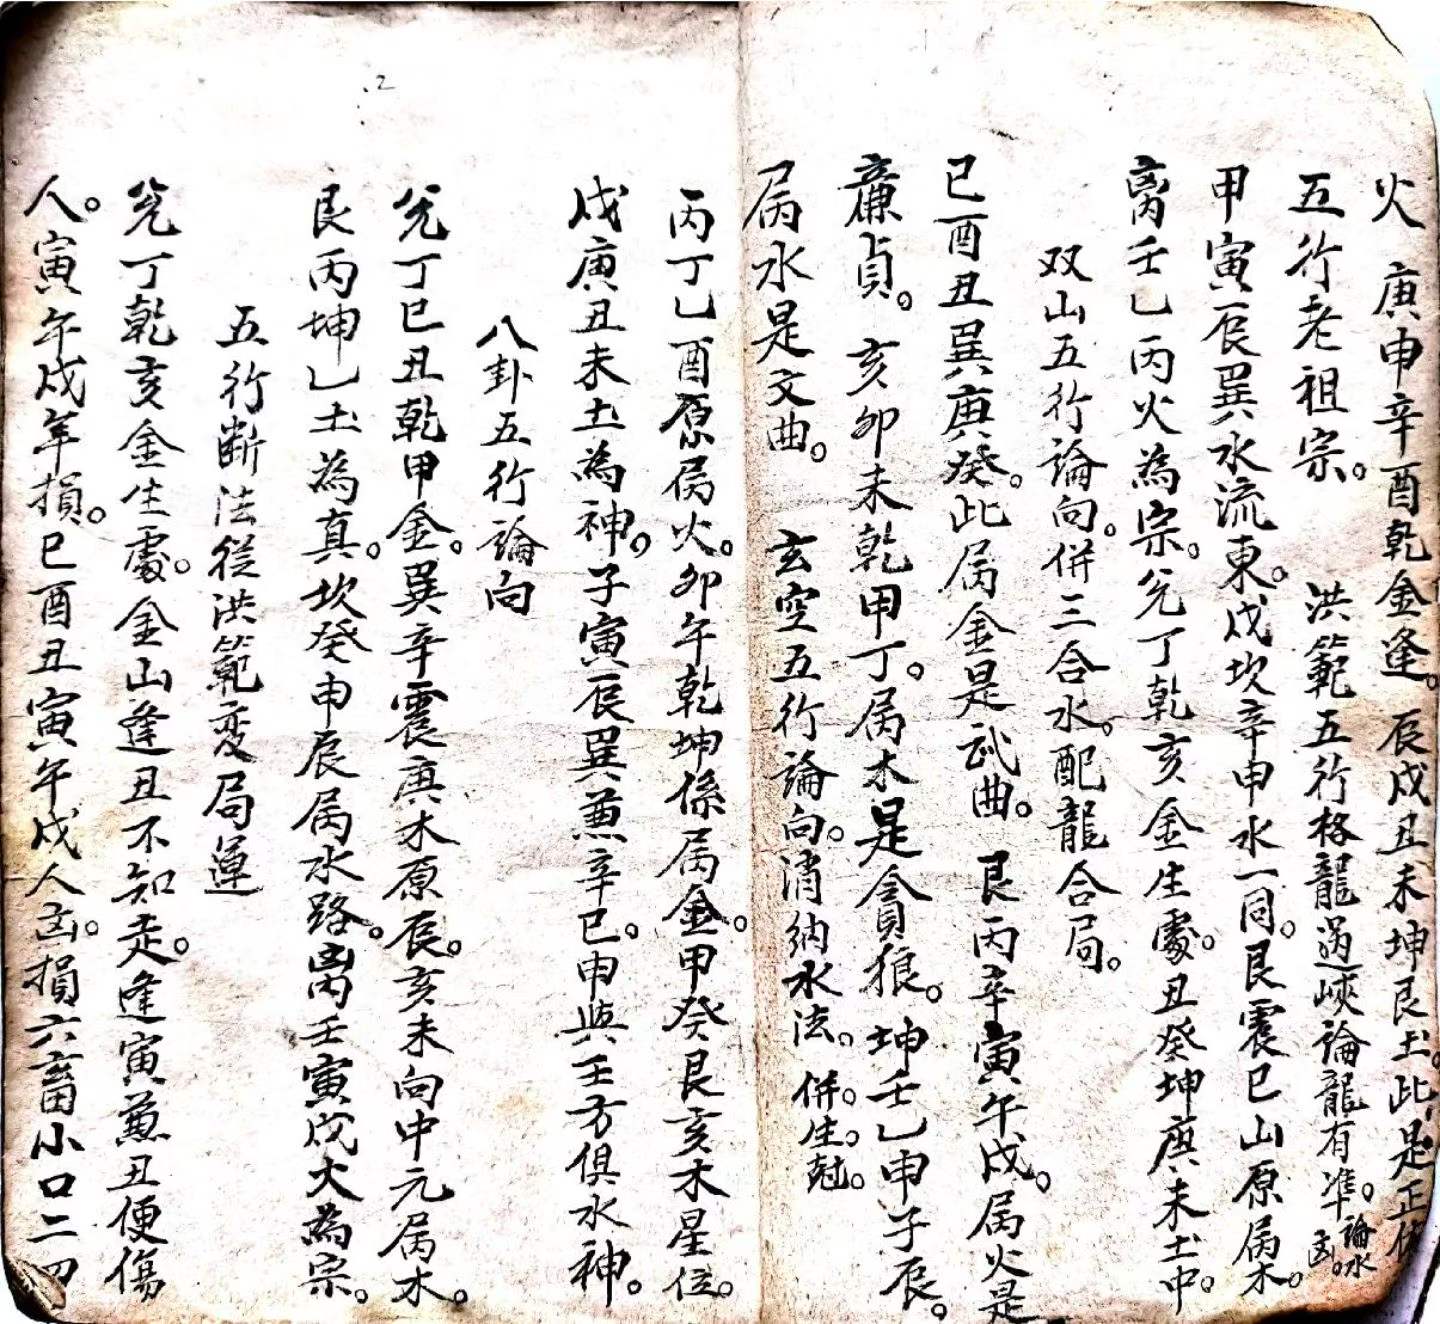 火 庚申辛酉乾金逢。辰戌丑未坤艮土。此是正
五行老祖宗。 洪範五行格龍過峽論龍有準。論水凶。
甲寅辰巽水流東。戌坎辛申水一同。艮震巳山原屬木。
离壬乙丙火為宗。兌丁乾亥金生處。丑癸坤庚未土中。
双山五行論向。併三合水。配龍合局。
巳酉丑巽庚癸。此属金是武曲。 艮丙辛寅午戌。属火是
亷貞。亥卯未乾甲丁。属木是貪狼。坤壬乙申子辰。
属水是文曲。 玄空五行論向。消納水法。併。生。尅。
丙丁乙酉原属火。卯午乾坤係属金。甲癸艮亥木星位。
戌庚丑未土為神。子寅辰巽兼辛巳。申與壬方俱水神。
八卦五行論向
兌丁巳丑乾甲金。巽辛震庚木原辰。亥未向中元属木。
艮丙坤乙土為真。坎癸申辰属水路。离壬寅戌大為宗。
五行断法從洪範変局運
兌丁乾亥金生處。金山逢丑不知走。逢寅兼丑便傷
人。寅午戌年損。巳酉丑寅午戌人凶。損六畜小口二四